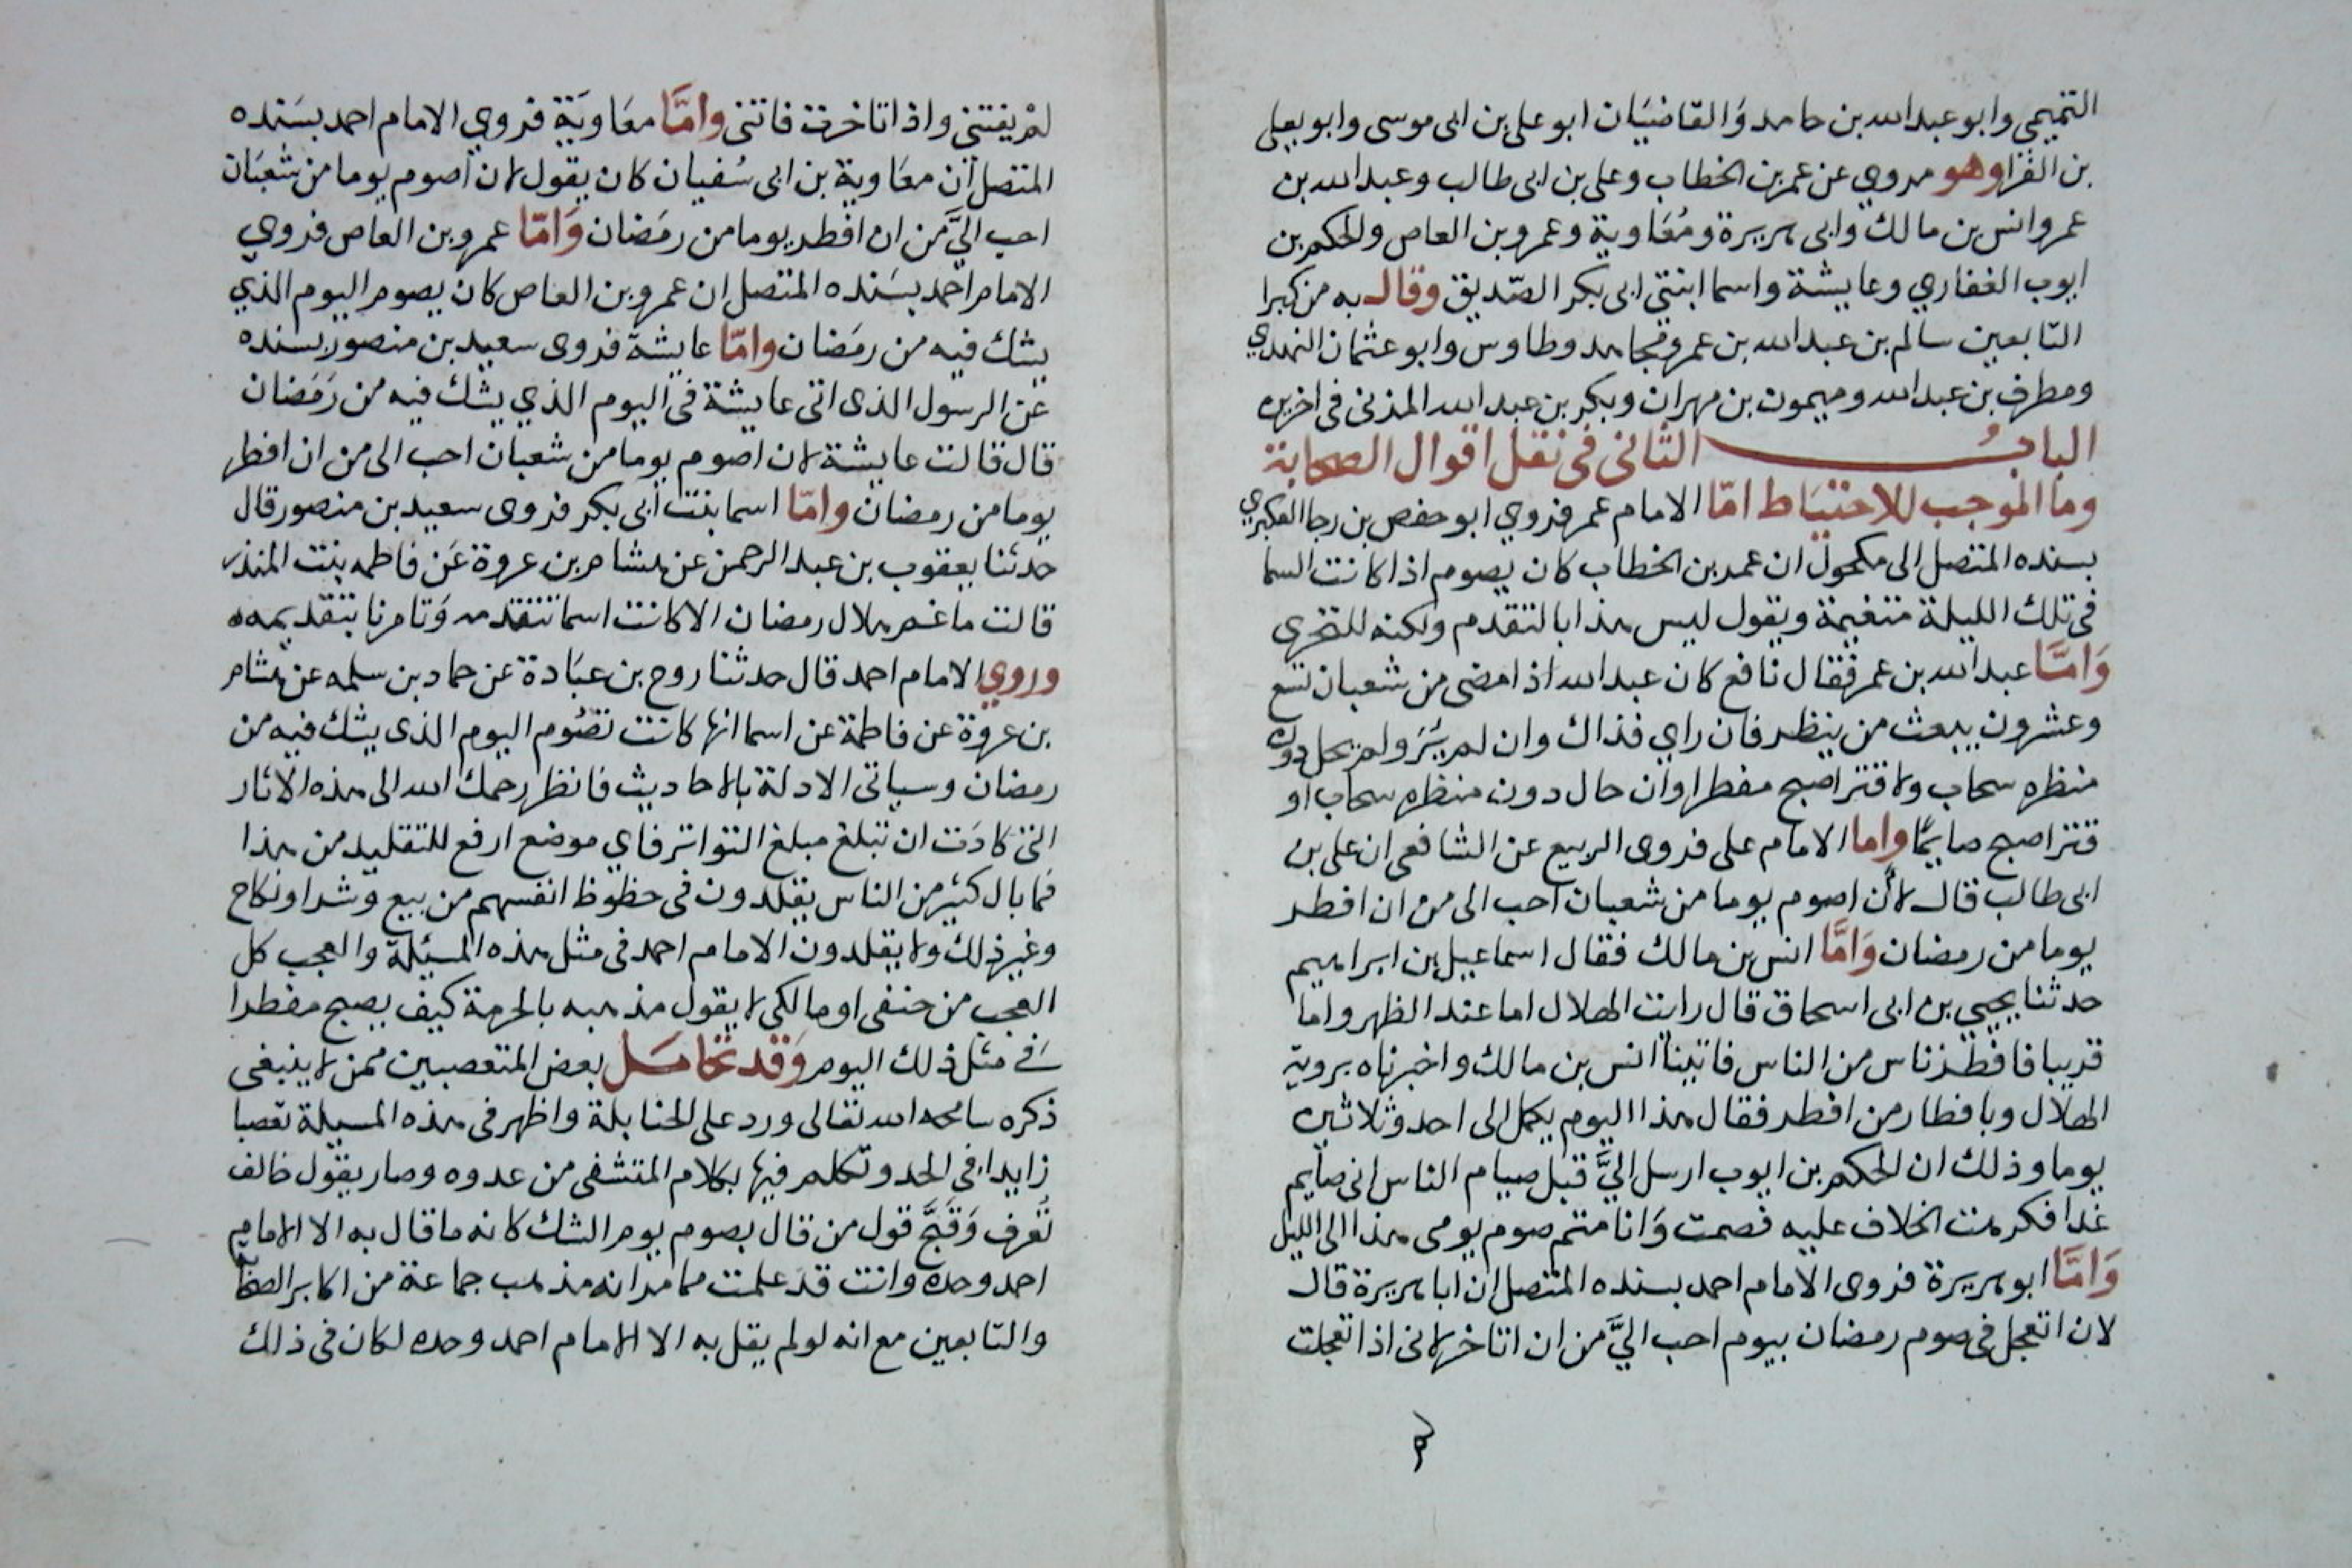 التميمي وابو عبد الله بن حامد وَالقاضيَان ابو على بن ابى موسى وابو يعلى
بن الفرا وهو مروي عن عمر بن الخطاب وعلى بن ابى طالب وعبد الله بن
عمر وانس بن مالك وابى هريرة ومُعَاوية وعمرو بن العاص والحكم بن
ايوب الغفاري وعايشة واسما ابنتى ابى بكر الصّديق وقال به من كبرا
التابعين سالم بن عبد الله بن عمر ومجاهد وطاوس وابو عثمان النهدي
ومطرف بن عبد الله وميمون بن مهران وبكر بن عبد الله المزنى فى اخرين
البابُ الثانى فى نقل اقوال الصحابة
وما الموجب للاحتيَاط امّا الامام عمر فروي ابو حفص بن رجا العكبري
بسنده المتصل الى مكحول ان عمر بن الخطاب كان يصوم اذا كانت السما
فى تلك الليلة متغيمة ويقول ليس هذا بالتقدم ولكنه للتحرى
وَامَّا عبد الله بن عمر فقال نافع كان عبد الله اذا مضى من شعبان تسع
وعشرون يبعث من ينظر فان راي فذاك وان لم يُرَ ولم يحل دون
منظره سحاب ولا قتر اصبح مفطرا وان حال دون منظره سحاب او
قتر اصبح صايمًا واما الامام على فروى الربيع عن الشافعى ان على بن
ابى طالب قال لأن اصوم يوما من شعبان احب الى من ان افطر
يوما من رمضان وَامَّا انس بن مالك فقال اسماعيل بن ابراهيم
حدثنا يحيى بن ابى اسحاق قال رايت الهلال اما عند الظهر واما
قريبا فافطر ناس من الناس فاتينا انس بن مالك واخبرناه بروية
الهلال وبافطار من افطر فقال هذا اليوم يكمل الى احد وثلاثين
يوما وذلك ان الحكم بن ايوب ارسل اليَّ قبل صيام الناس انى صايم
غدا فكرهت الخلاف عليه فصمت وَانا متم صوم يومى هذا الى الليل
وَامَّا ابو هريرة فروى الامام احمد بسنده المتصل ان ابا هريرة قال
لان اتعجل فى صوم رمضان بيوم احب اليَّ من ان اتاخر لانى اذا تعجلت
لمْ يفتنى واذا تاخرت فاتنى وامَّا معَاويَة فروي الامام احمد بسَنده
المتصل ان معَاوية بن ابى سُفيان كان يقول لان اصوم يوما من شعبَان
احب اليَّ من ان افطر يوما من رمَضان وَامّا عمرو بن العاص فروي
الامام احمد بسَنده المتصل ان عمرو بن العاص كان يصوم اليوم الذي
يشك فيه من رمَضان وامّا عايشة فروى سعيد بن منصور بسنده
عن الرسول الذى اتى عايشة فى اليوم الذي يشك فيه من رَمَضان
قال قالت عايشة لان اصوم يوما من شعبان احب الى من ان افطر
يوما من رمضان وامّا اسما بنت ابى بكر فروى سعيد بن منصور قال
حدثنا يعقوب بن عبد الرحمن عن هشام بن عروة عَن فاطمه بنت المنذر
قالت ما غم هلال رمضان الا كانت اسما تتقدمه وَتامرنا بتقديمه
وروي الامام احمد قال حدثنا روح بن عبَادة عن حماد بن سلمه عن هشام
بن عروة عن فاطمة عن اسما انها كانت تصُوم اليوم الذى يشك فيه من
رمضان وسياتى الادلة بالاحاديث فانظر رحمك الله الى هذه الاثار
التى كادَت ان تبلغ مبلغ التواتر فاي موضع ارفع للتقليد من هذا
فما بال كثير من الناس يقلدون فى حظوظ انفسهم من بيع وشرا ونكاح
وغير ذلك ولا يقلدون الامام احمد فى مثل هذه المسئلة والعجب كل
العجب من حنفى او مالكى لا يقول مذهبه بالحرمة كيف يصبح مفطرا
فى مثل ذلك اليوم وَقد تحامَل بعض المتعصبين ممن لا ينبغى
ذكره سامحه الله تعالى ورد على الحنابلة واظهر فى هذه المسيلة تعصبا
زايدا فى الحد وتكلم فيها بكلام المتشفى من عدوه وصار يقول خالف
تُعرف وَقبَّح قول من قال بصوم يوم الشك كانه ما قال به الا الامام
احمد وحده وانت قد علمت مما مر انه مذهب جماعة من اكابر الصحابة
والتابعين مع انه لو لم يقل به الا الامام احمد وحده لكان فى ذلك